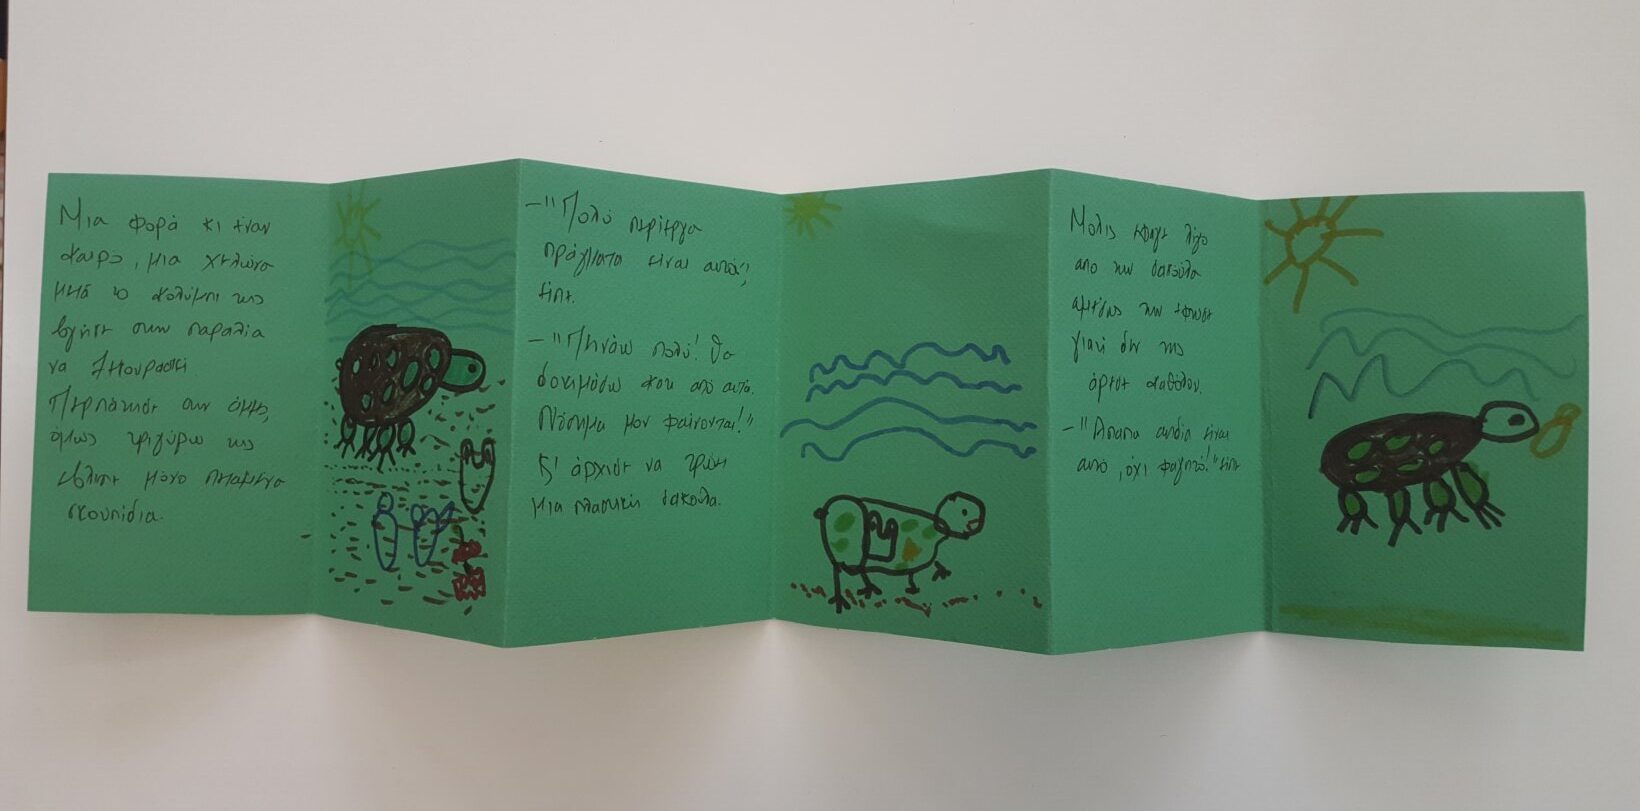 Μια φορά κι έναν
καιρό, μια χελώνα
μετά το κολύμπι της
βγήκε στην παραλία
να ξεκουραστεί
Περπάτησε στην άμμο,
όμως τριγύρω της
έβλεπε μόνο πεταμένα
σκουπίδια.
-"Πολύ περίεργα
πράγματα είναι αυτά!"
είπε.
-"Πεινάω πολύ! Θα
δοκιμάσω και από αυτά.
Νόστιμα μου φαίνονται!"
Κι άρχισε να τρώει
μια πλαστική σακούλα.
Μόλις έφαγε λίγο
από την σακούλα
αμέσως την έφτυσε
γιατί δεν της
άρεσε καθόλου.
-"Απαπα αηδία είναι
αυτό, όχι φαγητό!" είπε